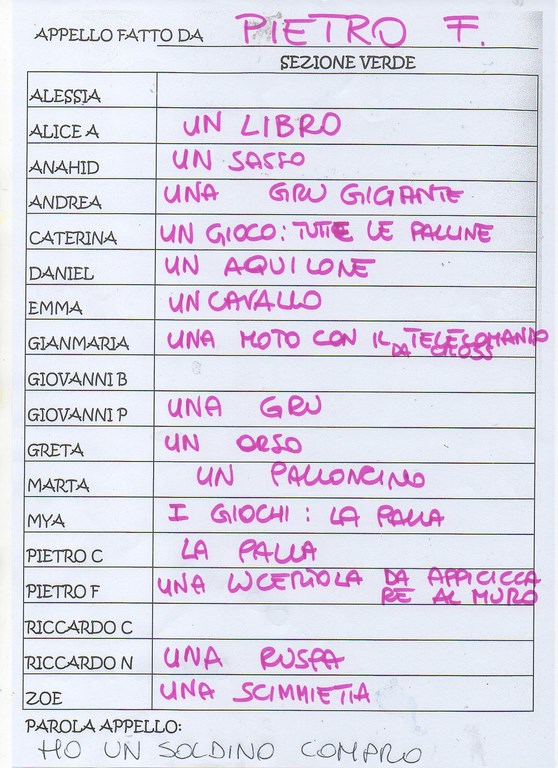 APPELLO FATTO DA PIETRO F.
SEZIONE VERDE
ALESSIA
ALICE A UN LIBRO
ANAHID UN SASSO
ANDREA UNA GRU GIGANTE
CATERINA UN GIOCO: TUTTE LE PALLINE
DANIEL UN AQUILONE
EMMA UN CAVALLO
GIANMARIA UNA MOTO CON IL TELECOMANDO
DA CROSS
GIOVANNI B
GIOVANNI P UNA GRU
GRETA UN ORSO
MARTA UN PALLONCINO
MYA I GIOCHI: LA PALLA
PIETRO C LA PALLA
PIETRO F UNA LUCERTOLA DA APPICICCA
RE AL MURO
RICCARDO C
RICCARDO N UNA RUSPA
ZOE UNA SCIMMIETTA
PAROLA APPELLO:
HO UN SOLDINO COMPRO